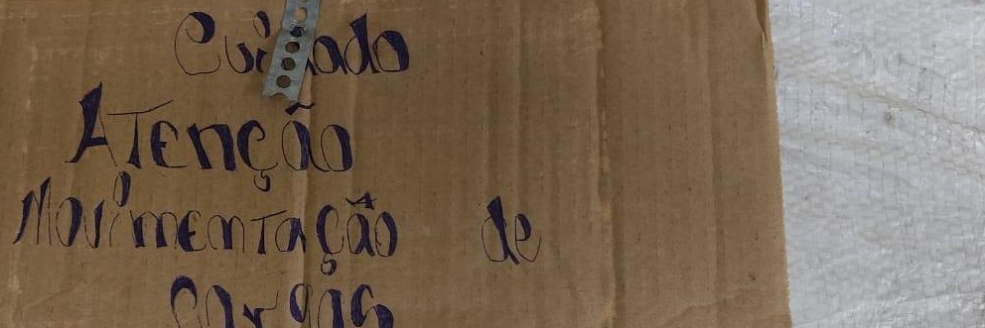 Cuidado
Atenção
Movimentação de
Cargas